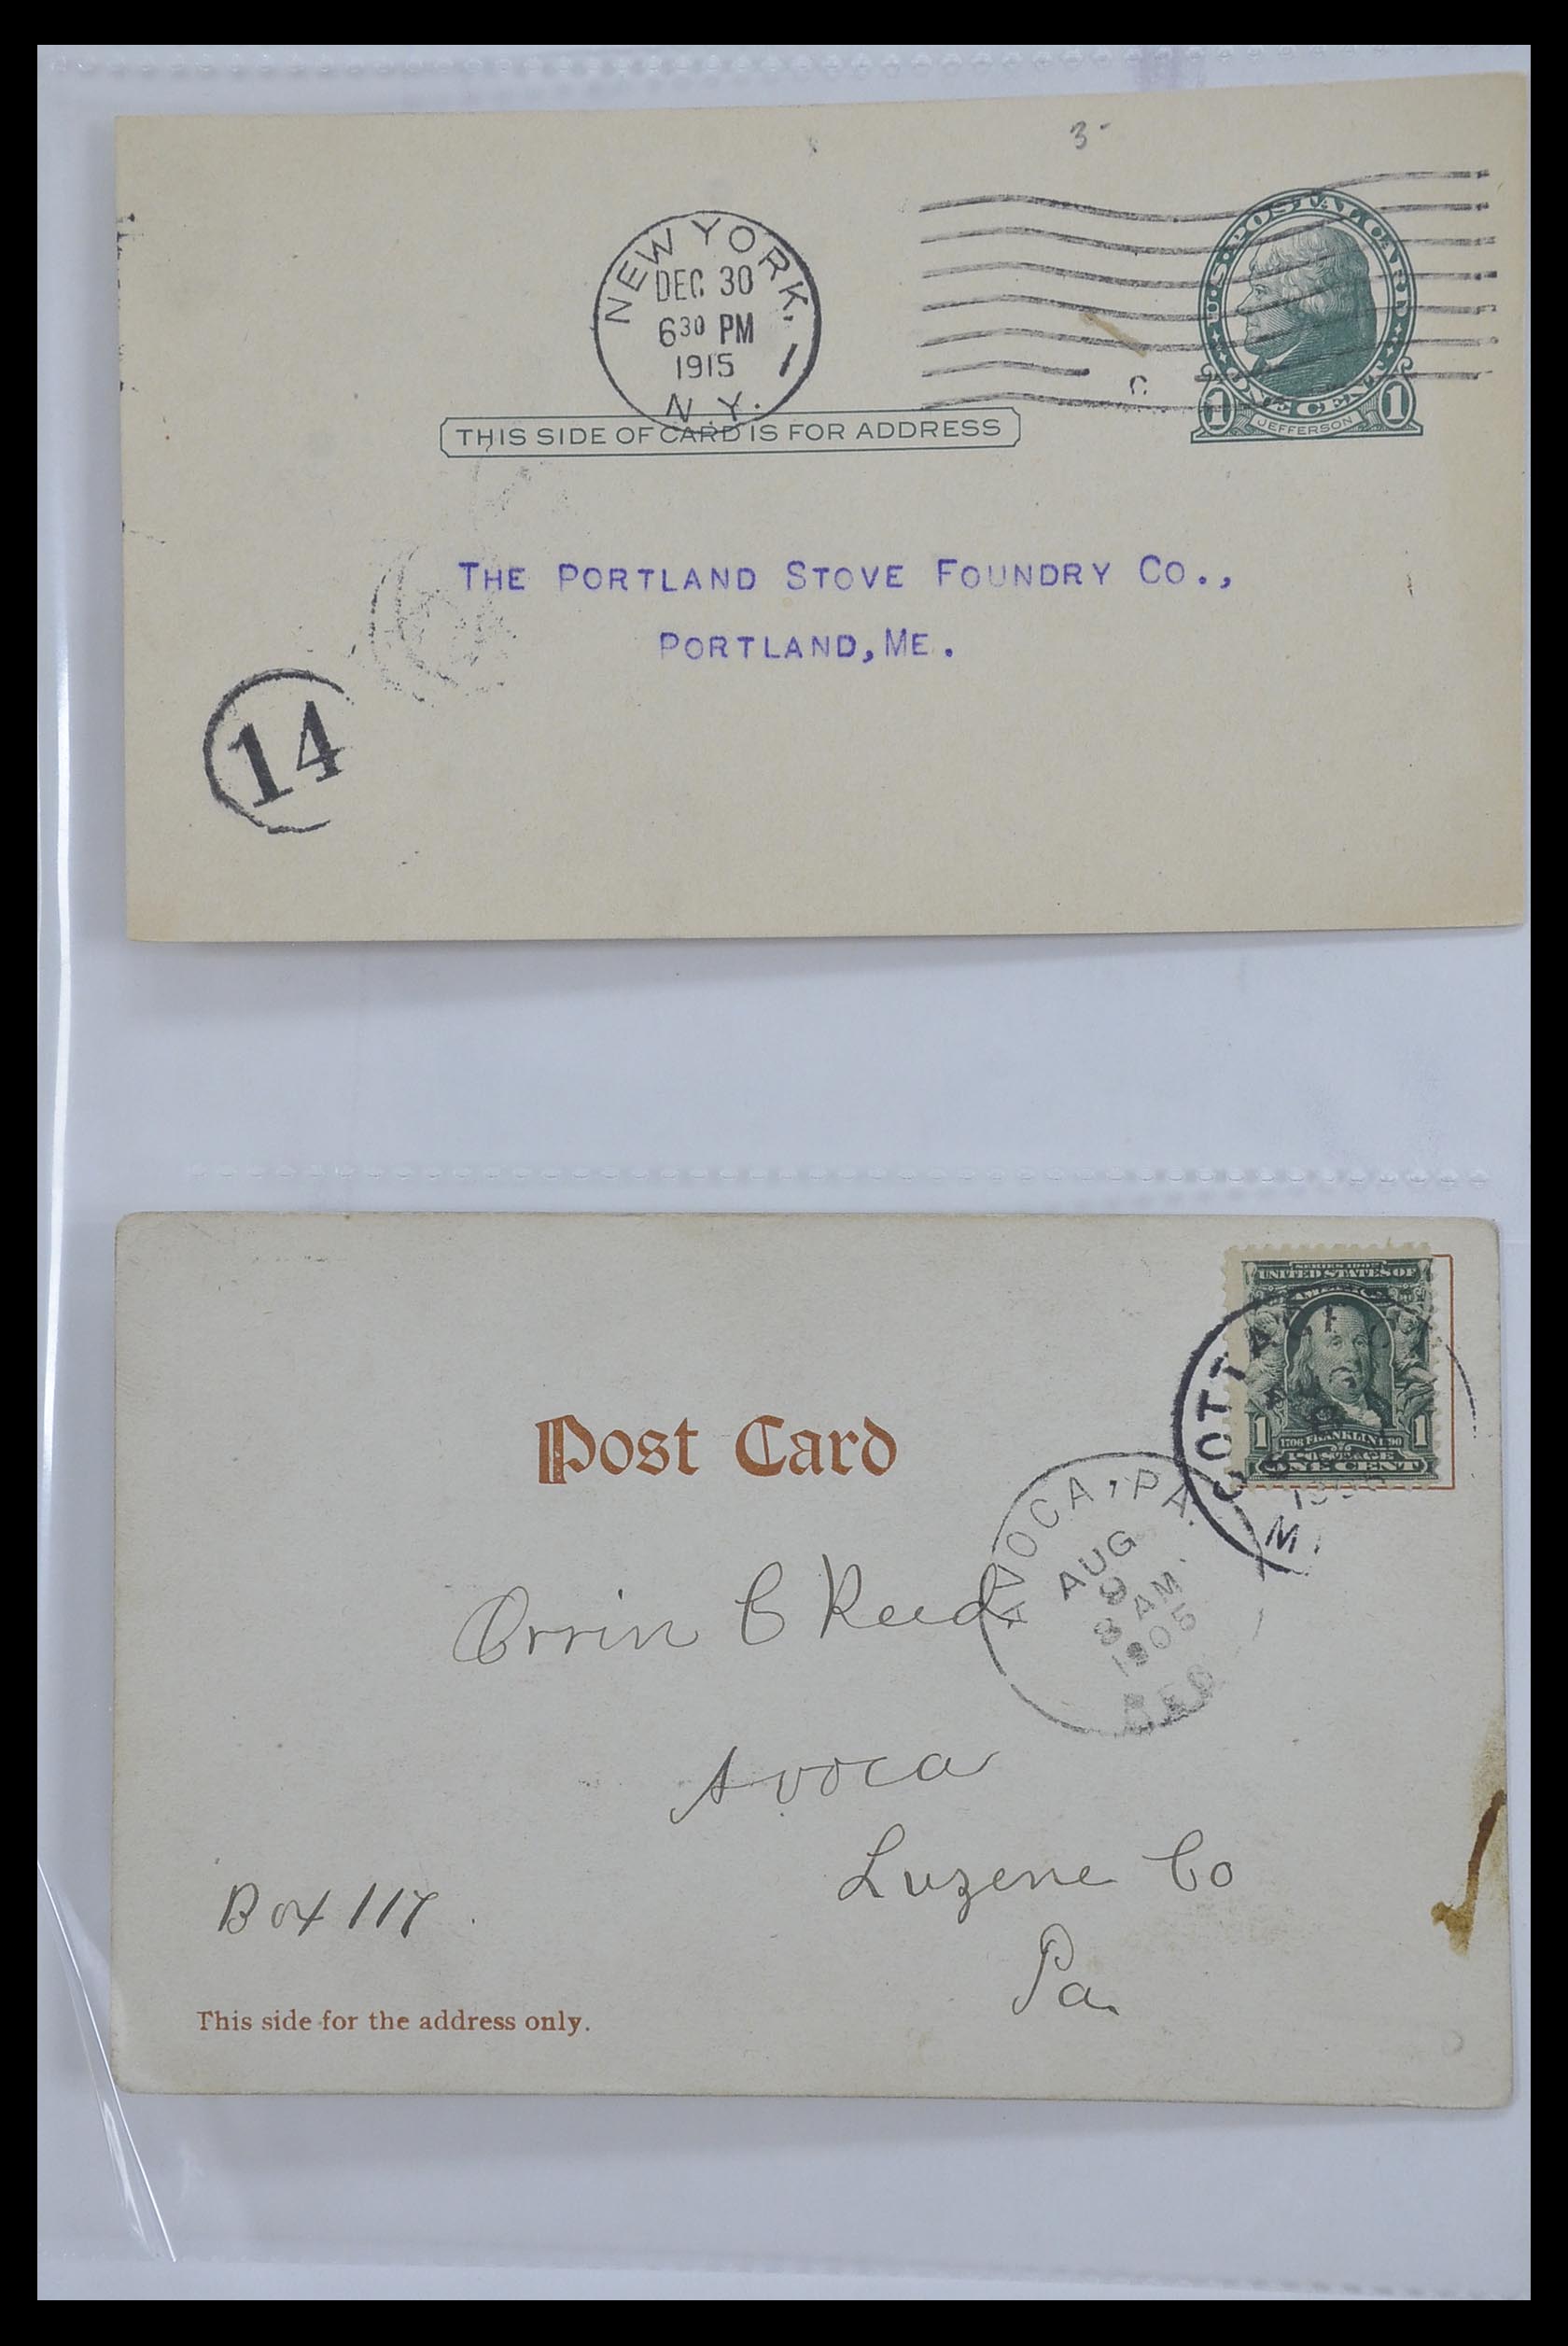 3-
NEW YORK,
DEC 30
6³⁰ PM
1915
N.Y.
1
U.S. POSTAL CARD
ONE CENT
1 JEFFERSON 1
THIS SIDE OF CARD IS FOR ADDRESS
THE PORTLAND STOVE FOUNDRY CO.,
PORTLAND, ME.
14
SERIES 1902
UNITED STATES OF
AMERICA
1 1706 FRANKLIN 1790 1
POSTAGE
ONE CENT
Post Card
AVOCA, PA.
AUG
9
8 AM
1905
REC'D
Orrin C Reed
Avoca
Luzene Co
Pa.
Box 117.
This side for the address only.